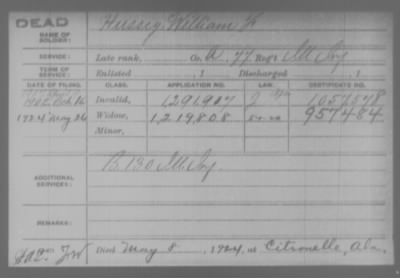 DEAD
NAME OF SOLDIER: Hussey, William F.
SERVICE: Late rank, Co. A, 77 Reg't Ill Inf
TERM OF SERVICE: Enlisted , 1 Discharged , 1
DATE OF FILING. CLASS. APPLICATION NO. LAW. CERTIFICATE NO.
1902 Feb 16 Invalid, 1291907 1057578
1924 May 26 Widow, 1,219,808 957484
Minor,
ADDITIONAL SERVICES: B 130 Ill Inf
REMARKS:
Died May 8, 1924, at Citronelle, Ala.